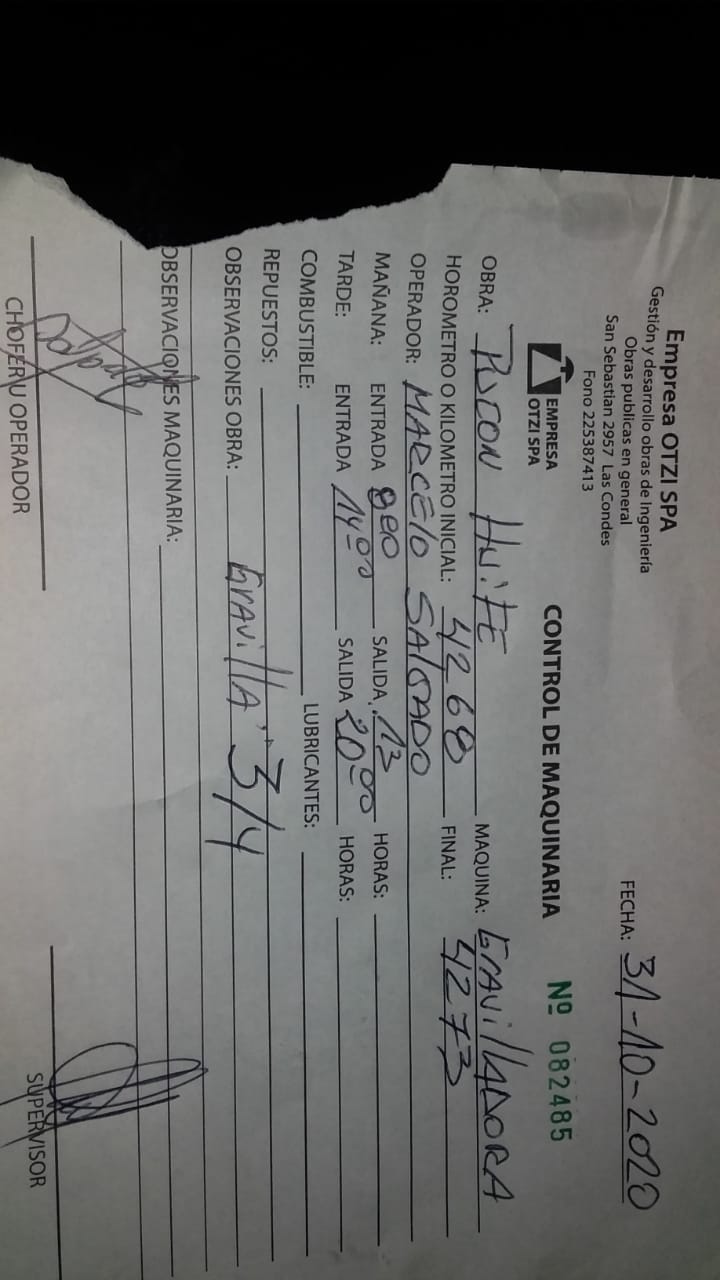 Empresa OTZI SPA
Gestión y desarrollo obras de Ingeniería
Obras publicas en general
San Sebastian 2957 Las Condes
Fono 225387413
FECHA: 31-10-2020
EMPRESA
OTZI SPA
CONTROL DE MAQUINARIA Nº 082485
OBRA: PUCON HUIFE MAQUINA: GRAVILLADORA
HOROMETRO O KILOMETRO INICIAL: 4268 FINAL: 4273
OPERADOR: MARCELO SALGADO
MAÑANA: ENTRADA 800 SALIDA 13 00 HORAS:
TARDE: ENTRADA 14 00 SALIDA 20 00 HORAS:
COMBUSTIBLE: LUBRICANTES:
REPUESTOS:
OBSERVACIONES OBRA: GRAVILLA 3/4
OBSERVACIONES MAQUINARIA:
CHOFER U OPERADOR SUPERVISOR